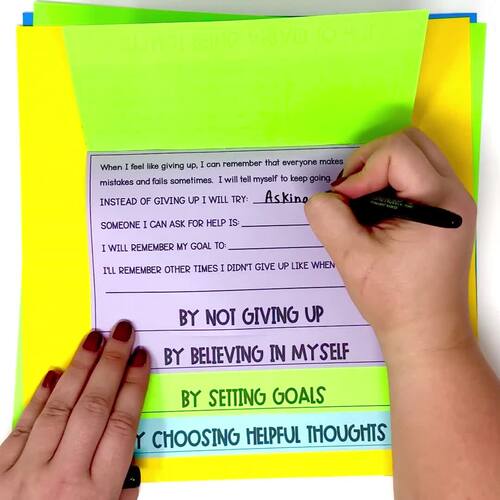 When I feel like giving up, I can remember that everyone makes
mistakes and fails sometimes. I will tell myself to keep going.
INSTEAD OF GIVING UP I WILL TRY: Asking
SOMEONE I CAN ASK FOR HELP IS:
I WILL REMEMBER MY GOAL TO:
I'LL REMEMBER OTHER TIMES I DIDN'T GIVE UP LIKE WHEN
BY NOT GIVING UP
BY BELIEVING IN MYSELF
BY SETTING GOALS
BY CHOOSING HELPFUL THOUGHTS